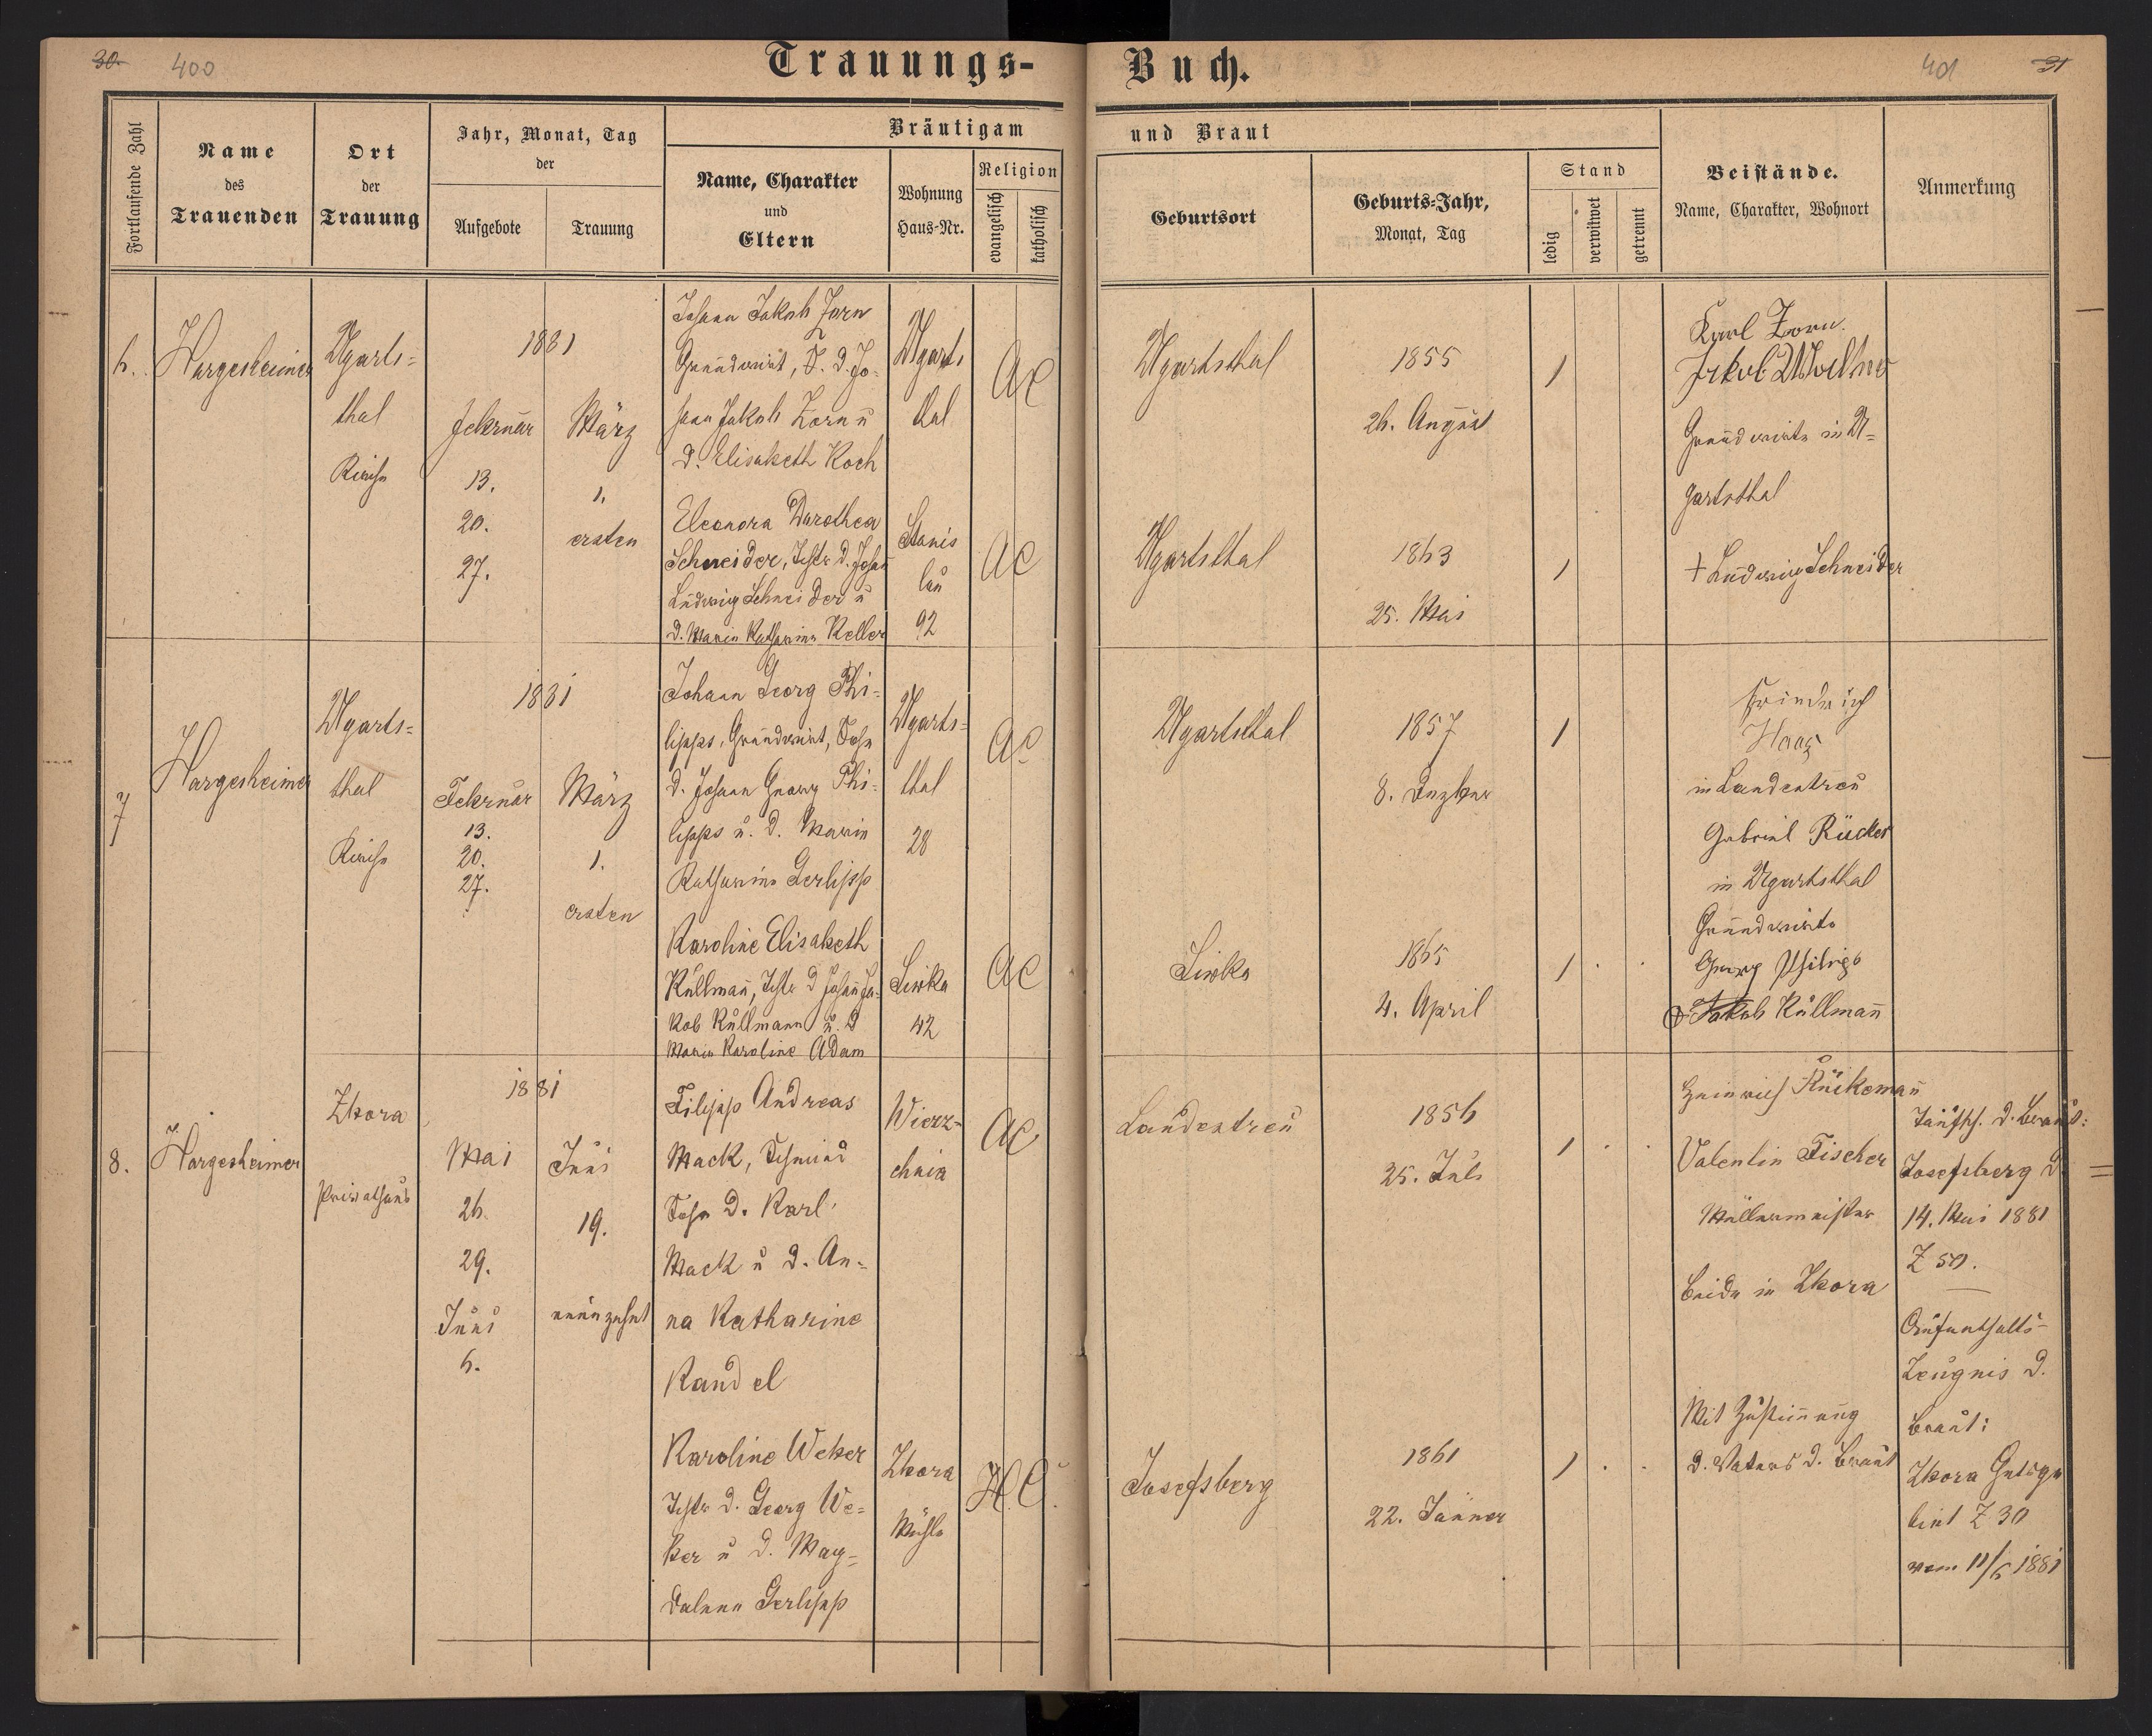 30.
400
Trauungs-
Buch.
401
31
Fortlaufende Zahl
Name
des
Trauenden
Ort
der
Trauung
Jahr, Monat, Tag
der
Aufgebote
Trauung
Bräutigam
Name, Charakter
und
Eltern
Wohnung
Haus-Nr.
Religion
evangelisch
katholisch
und Braut
Geburtsort
Geburts-Jahr,
Monat, Tag
Stand
ledig
verwitwet
getrennt
Beistände.
Name, Charakter, Wohnort
Anmerkung
6.
Hargesheimer
Ugarts=
thal
Kirche
1881
Februar
13.
20.
27.
März
1.
ersten
Johann Jakob Zorn
Grundwirt, S. d. Jo-
hann Jakob Zorn u
d. Elisabeth Koch
Ugarts
thal
AC
Ugartsthal
1855
26. August
1
Eleonora Dorothea
Schneider, Tchtr d. Johan̄
Ludwig Schneider u
d. Maria Katharina Keller
Stanis
lau
92
AC
Ugartsthal
1863
25. Mai
1
Karl Zorn
Jakob Wollmer
Grundwirte in U=
gartsthal
+ Ludwig Schneider
7
Hargesheimer
Ugarts=
thal
Kirche
1881
Februar
13.
20.
27.
März
1.
ersten
Johann Georg Phi=
lipps, Grundwirt, Sohn
d. Johann Georg Phi-
lipps u. d. Maria
Katharina Gerlipp
Ugarts=
thal
28
AC
Ugartsthal
1857
8. Dezber
1
Karoline Elisabeth
Kullman̄, Tchtr d Johan̄ Ja-
kob Kullmann u. d
Maria Karoline Adam
Siwka
42
AC
Siwka
1865
4. April
1
Friedrich
Haas
in Landestreu
Gabriel Rücker
in Ugartsthal
Grundwirte
Georg Philips
Jakob Kullman̄
8.
Hargesheimer
Zbora
Privathaus
1881
Mai
26.
29.
Juni
6.
Juni
19.
neunzehnt
Filipp Andreas
Mack, Schmied
Sohn d. Karl
Mack u d. An-
na Katharine
Kandel
Wierz-
chnia
AC
Landestreu
1856
25. Juli
1
Karoline Weber
Tchtr d. Georg We=
ber u d. Mag=
dalena Gerlipp
Zbora
Mühle
H.C.
Josefsberg
1861
22. Jänner
1
Heinrich Rückeman̄
Valentin Fischer
Müllermeister
beide in Zbora
Mit Zustim̄ung
d. Vaters d. Braut
Taufsch. d. Braut:
Josefsberg d.
14. Mai 1881
Z 50.
Aufenthalts-
Zeugnis d.
Braut:
Zbora Gutsge
biet Z 30
vom 11/6 1881